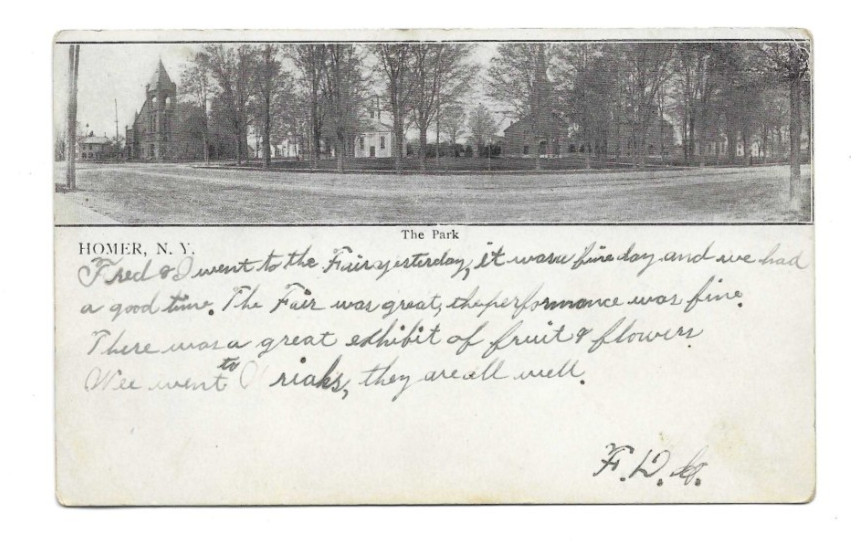 The Park
HOMER, N. Y.
Fred & I went to the Fair yesterday, it was a fine day and we had
a good time. The Fair was great, the performance was fine.
There was a great exhibit of fruit & flowers
Wee went to they are all well.
F. D.